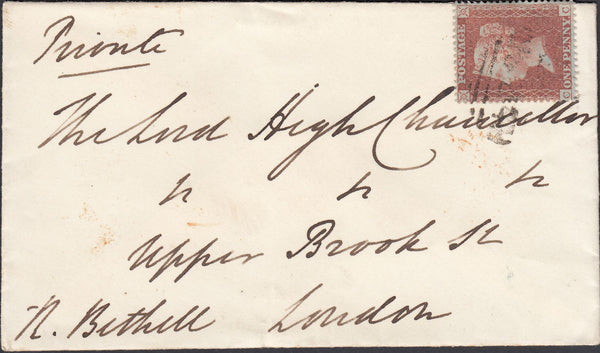 Private
POSTAGE
ONE PENNY
The Lord High Chancellor
Upper Brook St
R. Bethell London